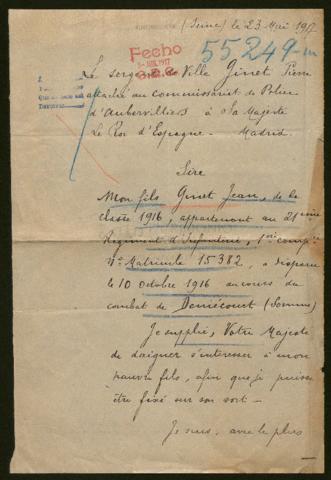 (Seine) le 23 Mai 1917
55249-m
Fecho
5-JUN.1917
Le sergent de Ville Ginet Pierre
attaché au commissariat de Police
d'Aubervilliers à Sa Majesté
Le Roi d'Espagne - Madrid
Sire
Mon fils Ginet Jean, de la
classe 1916, appartenant au 21ème
Régiment d'Infanterie, 1ere comp
N° Matricule 15382, a disparu
le 10 Octobre 1916 au cours du
combat de Deniécourt (Somme)
Je supplie, Votre Majesté
de daigner s'intéresser à mon
pauvre fils, afin que je puisse
être fixé sur son sort -
Je suis, avec le plus